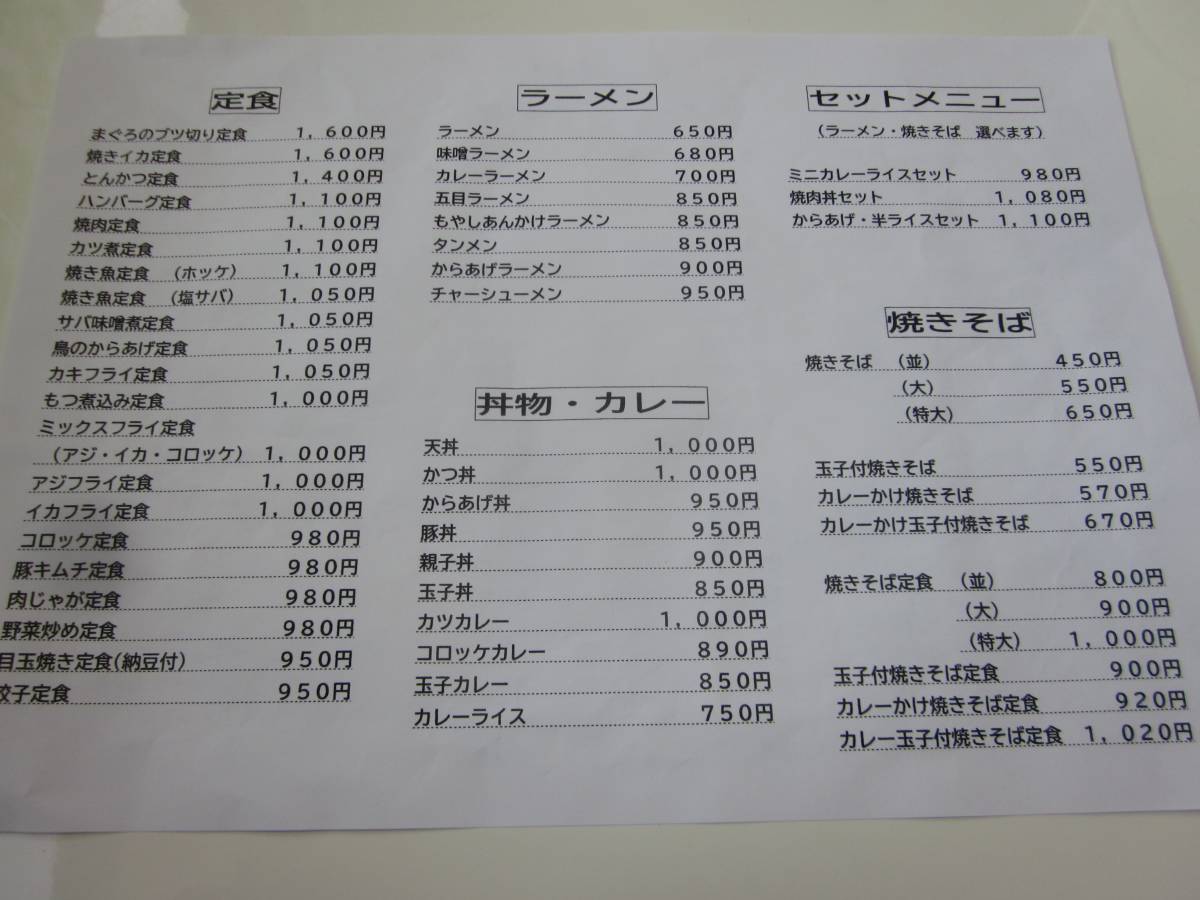 定食
まぐろのブツ切り定食 1,600円
焼きイカ定食 1,600円
とんかつ定食 1,400円
ハンバーグ定食 1,100円
焼肉定食 1,100円
カツ煮定食 1,100円
焼き魚定食 (ホッケ) 1,100円
焼き魚定食 (塩サバ) 1,050円
サバ味噌煮定食 1,050円
鳥のからあげ定食 1,050円
カキフライ定食 1,050円
もつ煮込み定食 1,000円
ミックスフライ定食
(アジ・イカ・コロッケ) 1,000円
アジフライ定食 1,000円
イカフライ定食 1,000円
コロッケ定食 980円
豚キムチ定食 980円
肉じゃが定食 980円
野菜炒め定食 980円
目玉焼き定食(納豆付) 950円
餃子定食 950円
ラーメン
ラーメン 650円
味噌ラーメン 680円
カレーラーメン 700円
五目ラーメン 850円
もやしあんかけラーメン 850円
タンメン 850円
からあげラーメン 900円
チャーシューメン 950円
丼物・カレー
天丼 1,000円
かつ丼 1,000円
からあげ丼 950円
豚丼 950円
親子丼 900円
玉子丼 850円
カツカレー 1,000円
コロッケカレー 890円
玉子カレー 850円
カレーライス 750円
セットメニュー
(ラーメン・焼きそば 選べます)
ミニカレーライスセット 980円
焼肉丼セット 1,080円
からあげ・半ライスセット 1,100円
焼きそば
焼きそば (並) 450円
(大) 550円
(特大) 650円
玉子付焼きそば 550円
カレーかけ焼きそば 570円
カレーかけ玉子付焼きそば 670円
焼きそば定食 (並) 800円
(大) 900円
(特大) 1,000円
玉子付焼きそば定食 900円
カレーかけ焼きそば定食 920円
カレー玉子付焼きそば定食 1,020円